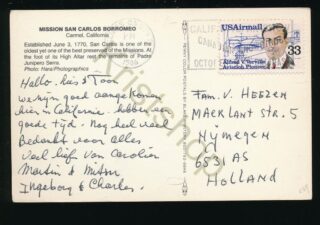 MISSION SAN CARLOS BORROMEO
Carmel, California
Established June 3, 1770, San Carlos is one of the
oldest and one of the best preserved of the Missions. At
the foot of its High Altar rest the remains of Padre
Junipero Serra.
Photo: Hara Photographics
USAirmail
33
Alfred V. Verville
Aviation Pioneer
Hallo
we zijn goed aangekomen
hier in Californie. hebben een
goede tijd. Nog heel veel
Bedankt voor alles
veel liefs van Carolien
Martin &
Ingeborg & Charles.
Fam. V. HEEZEN
MARKLANT STR. 5
Nÿmegen
6531 AS
HOLLAND